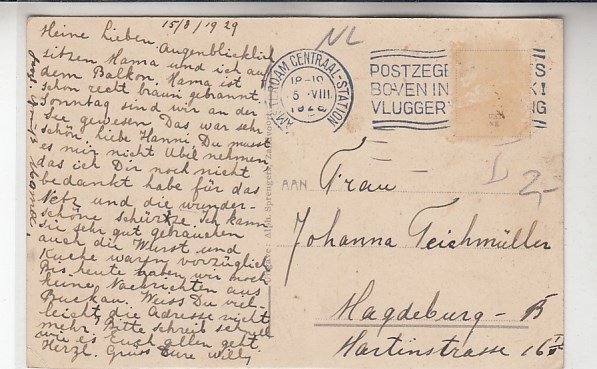 15/8/1929
Meine Lieben. Augenblicklich
sitzen Mama und ich auf
dem Balkon. Mama ist
schon recht braun gebrannt.
Sonntag sind wir an der
See gewesen Das war sehr
schön, liebe Hanni Du musst
es mir nicht Übel nehmen
das ich Dir noch nicht
bedankt habe für das
Netz und die wunder-
schöne schürtze. Ich kann
Sie sehr gut gebrauchen
auch die Wurst und
Kuche waren vorzüglich
Bis heute haben wir noch
keine Nachrichten aus
Buckau. Weiss Du viel-
leicht die Adresse nicht
mehr. Bitte schreib schnell
wie es Euch allen geht.
Herzl. Gruss Eure Willy
Mama.
NL
AMSTERDAM CENTRAAL-STATION
VIII
POSTZEGE
BOVEN IN
VLUGGER
Alph. Sprengers, Zandvoort
AAN
Frau
Johanna Teichmüller
Magdeburg-B
Martinstrasse 16
2,-